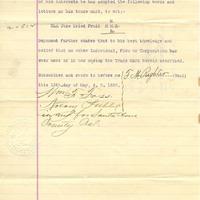 of his interests to has adopted the following words and
letters as his trade mark, to wit:
San Jose Dried Fruit
Deponent further states that to his best knowledge and
belief that no other individual, Firm or Corporation has
ever used or is now using the Trade Mark herein described.
Subscribed and sworn to before me (Seal)
this 13th day of May, A. D. 189
Notary Public
in and for Santa Clara
County Cal.